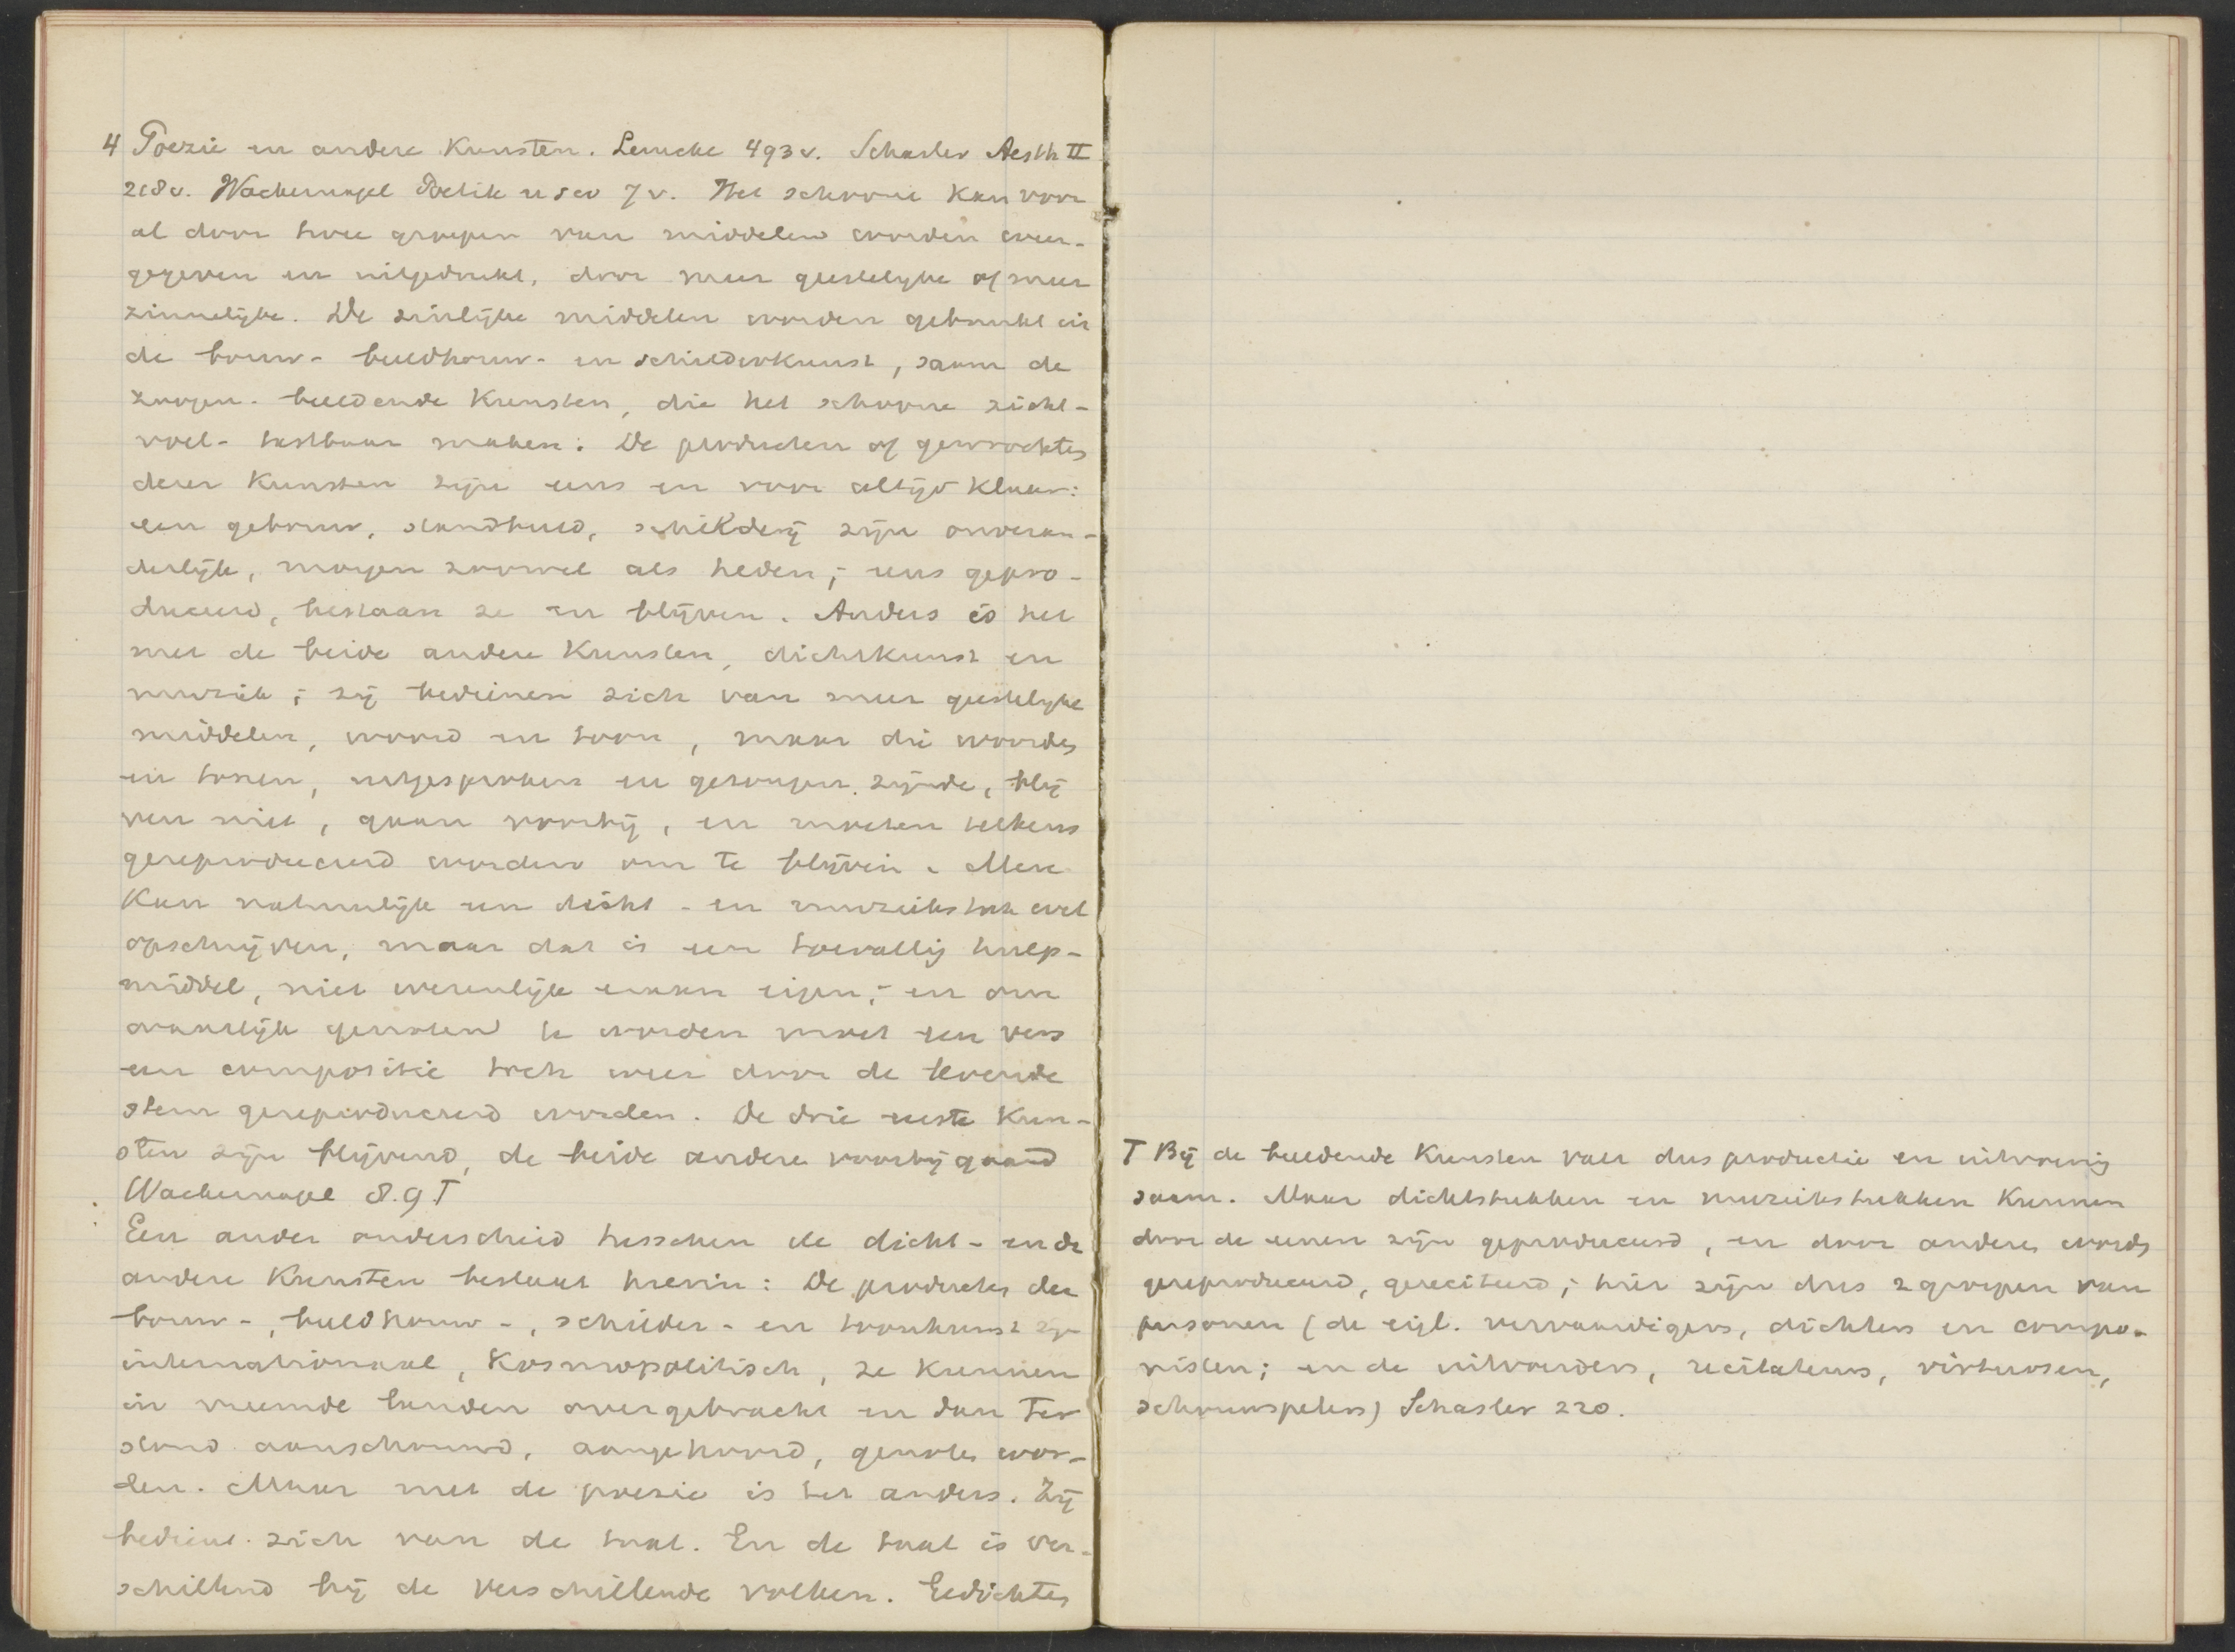 4 Poezie en andere Kunsten. Lemcke 493 v. Schasler Aesth II
218 v. Wackernagel Poetik u s w 7 v. Het schoone kan voor
al door twee groepen van middelen worden weer-
gegeven en uitgedrukt, door meer geestelyke of meer
zinnelijke. De zinlijke middelen worden gebruikt in
de bouw- beeldhouw- en schilderkunst, saam de
zoogen. beeldende Kunsten, die het schoone zicht-
voel- tastbaar maken: De producten of gewrochten
dezer Kunsten zijn eens en voor altijd klaar:
een gebouw, standbeeld, schilderij zijn onveran-
derlijk, morgen zoowel als heden; - eens gepro-
duceerd, bestaan ze en blijven. Anders is het
met de beide andere Kunsten, dichtkunst en
muziek; zij bedienen zich van meer geestelyke
middelen, woord en toon, maar die woorden
en tonen, uitgesproken en gezongen zijnde, blij
ven niet, gaan voorbij, en moeten telkens
gereproduceerd worden om te blijven. Men
kan natuurlijk een dicht- en muziekstuk wel
opschrijven, maar dat is een toevallig hulp-
middel, niet wezenlijk eraan eigen; - en om
waarlijk genoten te worden moet een vers
een compositie toch weer door de levende
stem gereproduceerd worden. De drie eerste Kun-
sten zijn blijvend, de beide andere voorbijgaand
Wackernagel 8.9 T
Een ander onderscheid tusschen de dicht- en de
andere Kunsten bestaat hierin: De producten der
bouw-, beeldhouw-, schilder- en toonkunst zijn
internationaal, kosmopolitisch, ze kunnen
in vreemde landen overgebracht en dan ter
stond aanschouwd, aangehoord, genoten wor-
den. Maar met de poezie is het anders. Zij
bedient zich van de taal. En de taal is ver-
schillend bij de verschillende volken. Gedichten
T Bij de beeldende Kunsten valt dus productie en uitvoering
saam. Maar dichtstukken en muziekstukken kunnen
door de eenen zijn geproduceerd, en door anderen worden
gereproduceerd, gereciteerd; hier zijn dus 2 groepen van
personen (de eigl. vervaardigers, dichters en compo-
nisten; en de uitvoerders, recitateurs, virtuosen,
schouwspelers) Schasler 220.